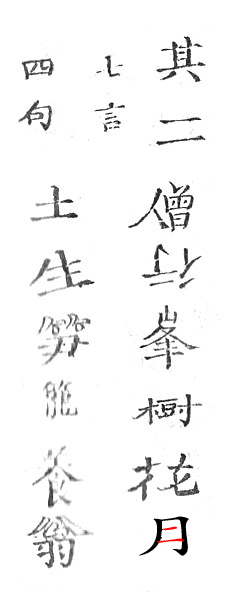 其二
七言
四句
僧行峯樹花月
土生養翁